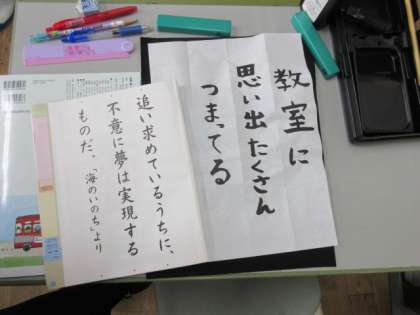 教室に
思い出たくさん
つまってる
追い求めているうちに、
不意に夢は実現する
ものだ。「海のいのち」より